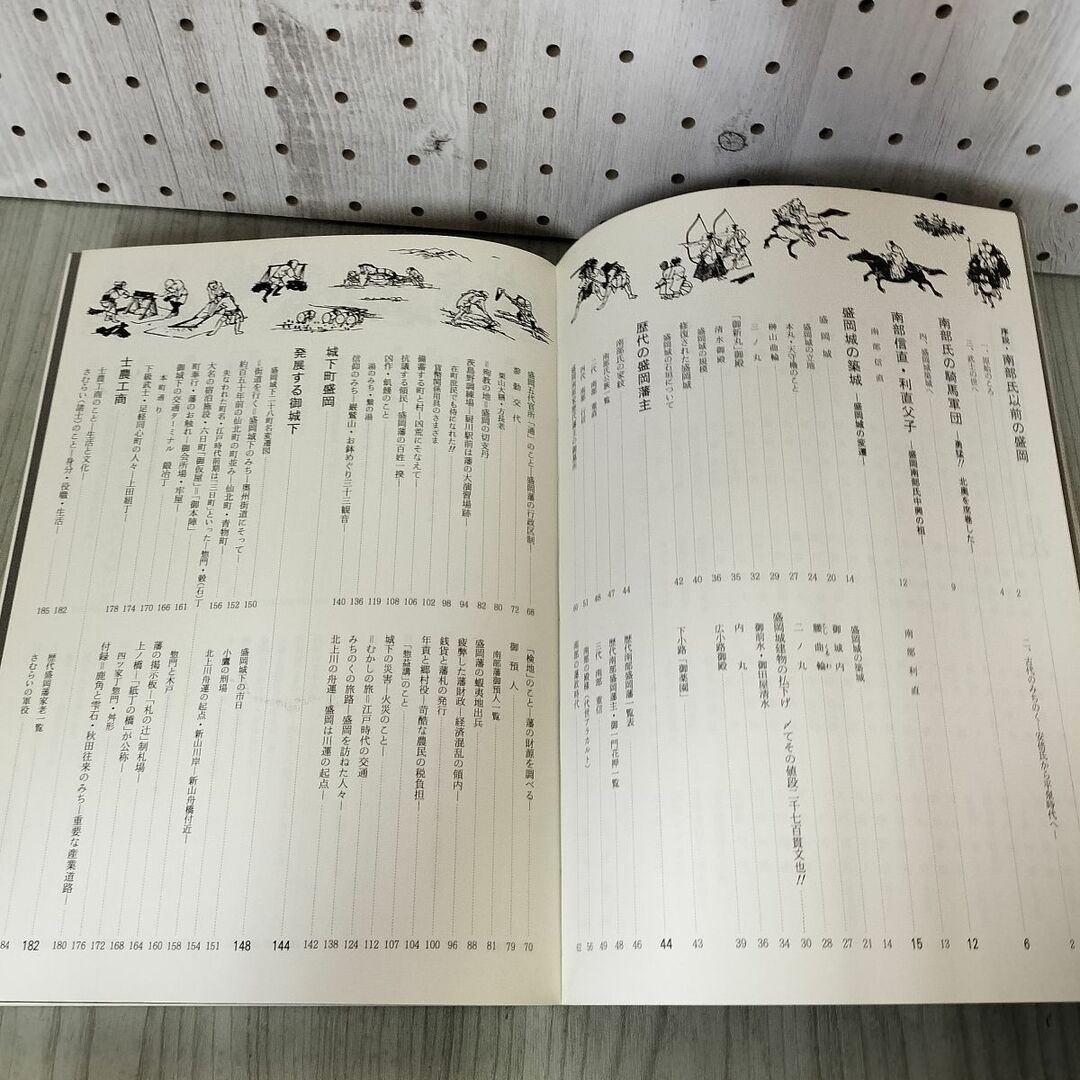 序説・南部氏以前の盛岡
一、原始のころ
三、武士の世に
四、盛岡城築城へ
南部氏の騎馬軍団―勇猛!! 北奥を席巻した―
南部信直・利直父子―盛岡南部氏中興の祖―
南部信直
盛岡城の築城―盛岡城の変遷―
盛岡城
盛岡城の立地
本丸・天守櫓のこと
三ノ丸
榊山曲輪
「御新丸」御殿
清水御殿
盛岡城の規模
修復された盛岡城
盛岡城の石垣について
歴代の盛岡藩主
南部氏の家紋
南部氏公族一覧
二代 南部重直
四代 南部行信
2
4
9
12
14
20
24
27
29
32
35
36
40
42
44
47
48
51
60
二、古代のみちのく―安倍氏から平泉時代へ―
南部利直
盛岡城の築城
御城内
腰曲輪
二ノ丸
盛岡城建物の払下げ 〆てその値段二千七百貫文也!!
御前水・御田屋清水
内丸
広小路御殿
下小路「御薬園」
歴代南部盛岡藩主一覧表
歴代南部盛岡藩主・御一門花押一覧
三代 南部重信
2
6
12
13
15
14
21
27
28
30
34
36
39
43
44
46
48
49
56
62
盛岡五代官所「通」のこと―盛岡藩の行政区制―
参勤交代
栗山大膳・方長老
＝殉教の地＝盛岡の切支丹
茨島野調練場・厨川駅前は藩の大演習場跡
在町庶民でも侍になれた!!
官幣関係用具のさまざま
備蓄する町と村―凶荒にそなえて―
抗議する領民―盛岡藩の百姓一揆―
凶作・飢饉のこと
湯のみち・繋の湯
信仰のみち―巌鷲山・お鉢めぐり三十三観音―
城下町盛岡
発展する御城下
盛岡城下二十八町名変遷図
＝街道を行く＝盛岡城下のみち―奥州街道にそって―
約百五十年前の仙北町の町並み―仙北町・青物町
失なわれた町名・江戸時代前期は「三日町」といった―惣門・穀(石)丁
大名の宿泊施設・六日町「御仮屋」＝「御本陣」
町奉行・藩のお触れ―御会所場・牢屋―
御城下の交通ターミナル 鍛冶丁
本町通り
下級武士・足軽同心町の人々―上田組丁―
士農工商
士農工商のこと―生活と文化―
さむらい(諸士)のこと―身分・役職・生活―
68
72
80
82
94
98
102
106
108
119
136
140
150
152
156
161
166
170
174
178
182
185
「検地」のこと―藩の財源を調べる―
御預人
南部藩御預人一覧
盛岡藩の蝦夷地出兵
疲弊した藩財政―経済混乱の領内―
銭貨と藩札の発行
年貢と郷村役―苛酷な農民の税負担
「惣益講」のこと
城下の災害―火災のこと―
＝むかしの旅＝江戸時代の交通
みちのくの旅路―盛岡を訪ねた人々―
北上川の舟運―盛岡は川運の起点―
盛岡城下の市日
小鷹の刑場
北上川舟運の起点・新山川岸・新山舟橋付近―
惣門と木戸
藩の掲示板―「札の辻」制札場―
上ノ橋―「紙丁の橋」が公称―
四ツ家丁惣門・舛形
付録＝鹿角と雫石・秋田往来のみち―重要な産業道路―
歴代盛岡藩家老一覧
さむらいの軍役
70
79
81
88
96
100
104
107
112
124
138
142
144
148
151
154
158
160
164
168
172
176
180
182
84